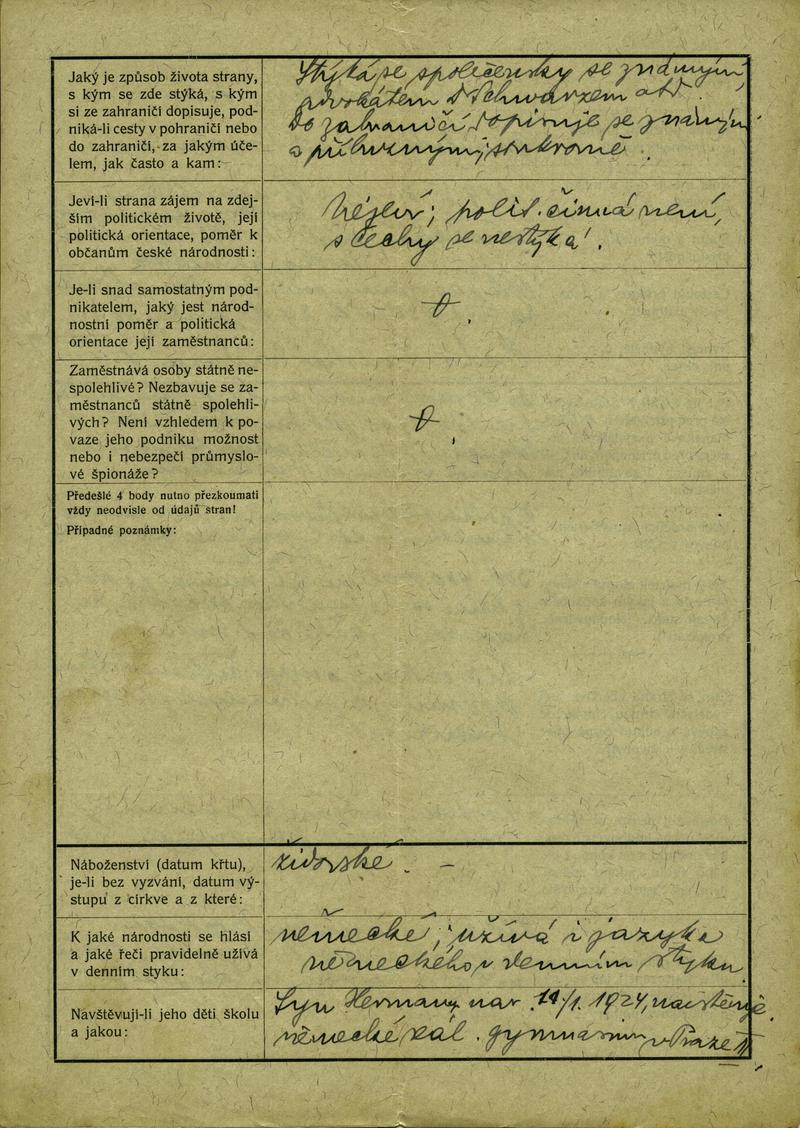 Jaký je způsob života strany,
s kým se zde stýká, s kým
si ze zahraničí dopisuje, pod-
niká-li cesty v pohraničí nebo
do zahraničí, za jakým úče-
lem, jak často a kam:
Stýká se společensky se známým
advokátem
se
Jeví-li strana zájem na zdej-
ším politickém životě, její
politická orientace, poměr k
občanům české národnosti:
polit. činná není,
s Čechy se nestýká.
Je-li snad samostatným pod-
nikatelem, jaký jest národ-
nostní poměr a politická
orientace její zaměstnanců:
Zaměstnává osoby státně ne-
spolehlivé? Nezbavuje se za-
městnanců státně spolehli-
vých? Není vzhledem k po-
vaze jeho podniku možnost
nebo i nebezpečí průmyslo-
vé špionáže?
Předešlé 4 body nutno přezkoumati
vždy neodvisle od údajů stran!
Případné poznámky:
Náboženství (datum křtu),
je-li bez vyzvání, datum vý-
stupu z církve a z které:
židovské. —
K jaké národnosti se hlásí
a jaké řeči pravidelně užívá
v denním styku:
německé, užívá i jazyka
německého v denním styku
Navštěvují-li jeho děti školu
a jakou:
Syn Hermann, nar. 1924,
německé reál. gymnasium v Praze